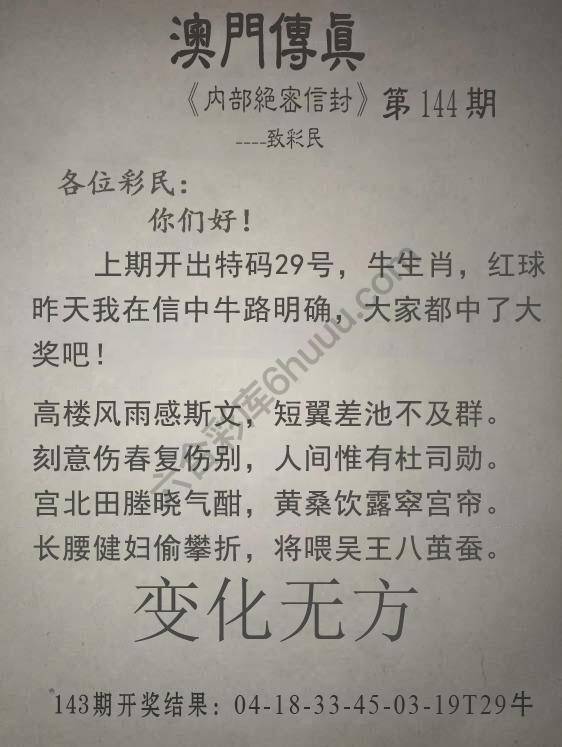 澳門傳眞
《内部絕密信封》第144期
----致彩民
各位彩民：
你们好！
上期开出特码29号，牛生肖，红球
昨天我在信中牛路明确，大家都中了大
奖吧！
高楼风雨感斯文，短翼差池不及群。
刻意伤春复伤别，人间惟有杜司勋。
宫北田塍晓气酣，黄桑饮露窣宫帘。
长腰健妇偷攀折，将喂吴王八茧蚕。
变化无方
143期开奖结果：04-18-33-45-03-19T29牛
六合彩库6huuu.com